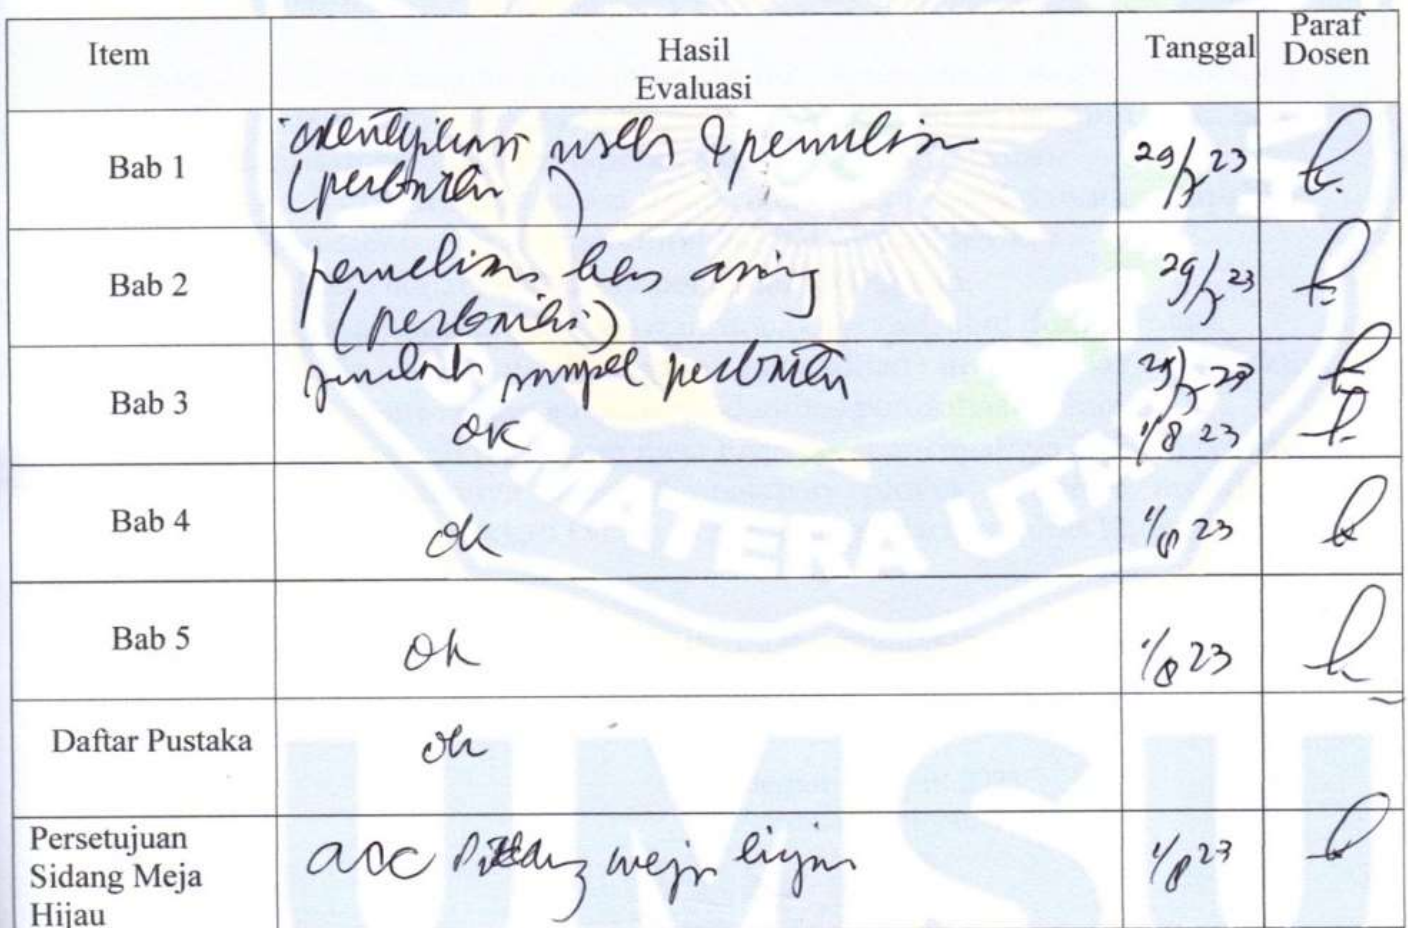 Item Hasil Evaluasi Tanggal Paraf Dosen
Bab 1 identifikasi mslh & penulisan (perbaiki) 29/7 23
Bab 2 penulisan bhs asing (perbaiki) 29/7 23
Bab 3 jumlah sampel perbaiki 29/7 23
ok 1/8 23
Bab 4 ok 1/8 23
Bab 5 ok 1/8 23
Daftar Pustaka ok
Persetujuan Sidang Meja Hijau acc sidang meja hijau 1/8 23
SUMATERA UTARA
UMSU